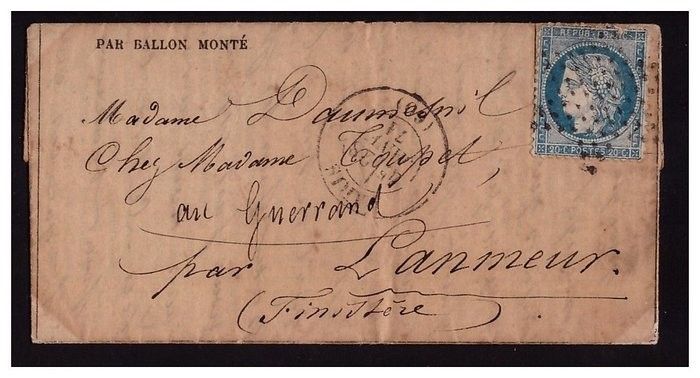 PAR BALLON MONTÉ
REPUB
Madame Daumesnil
Chez Madame Toupet,
au Guerrand
par Lanmeur.
(Finistère)
20 C POSTES 20 C